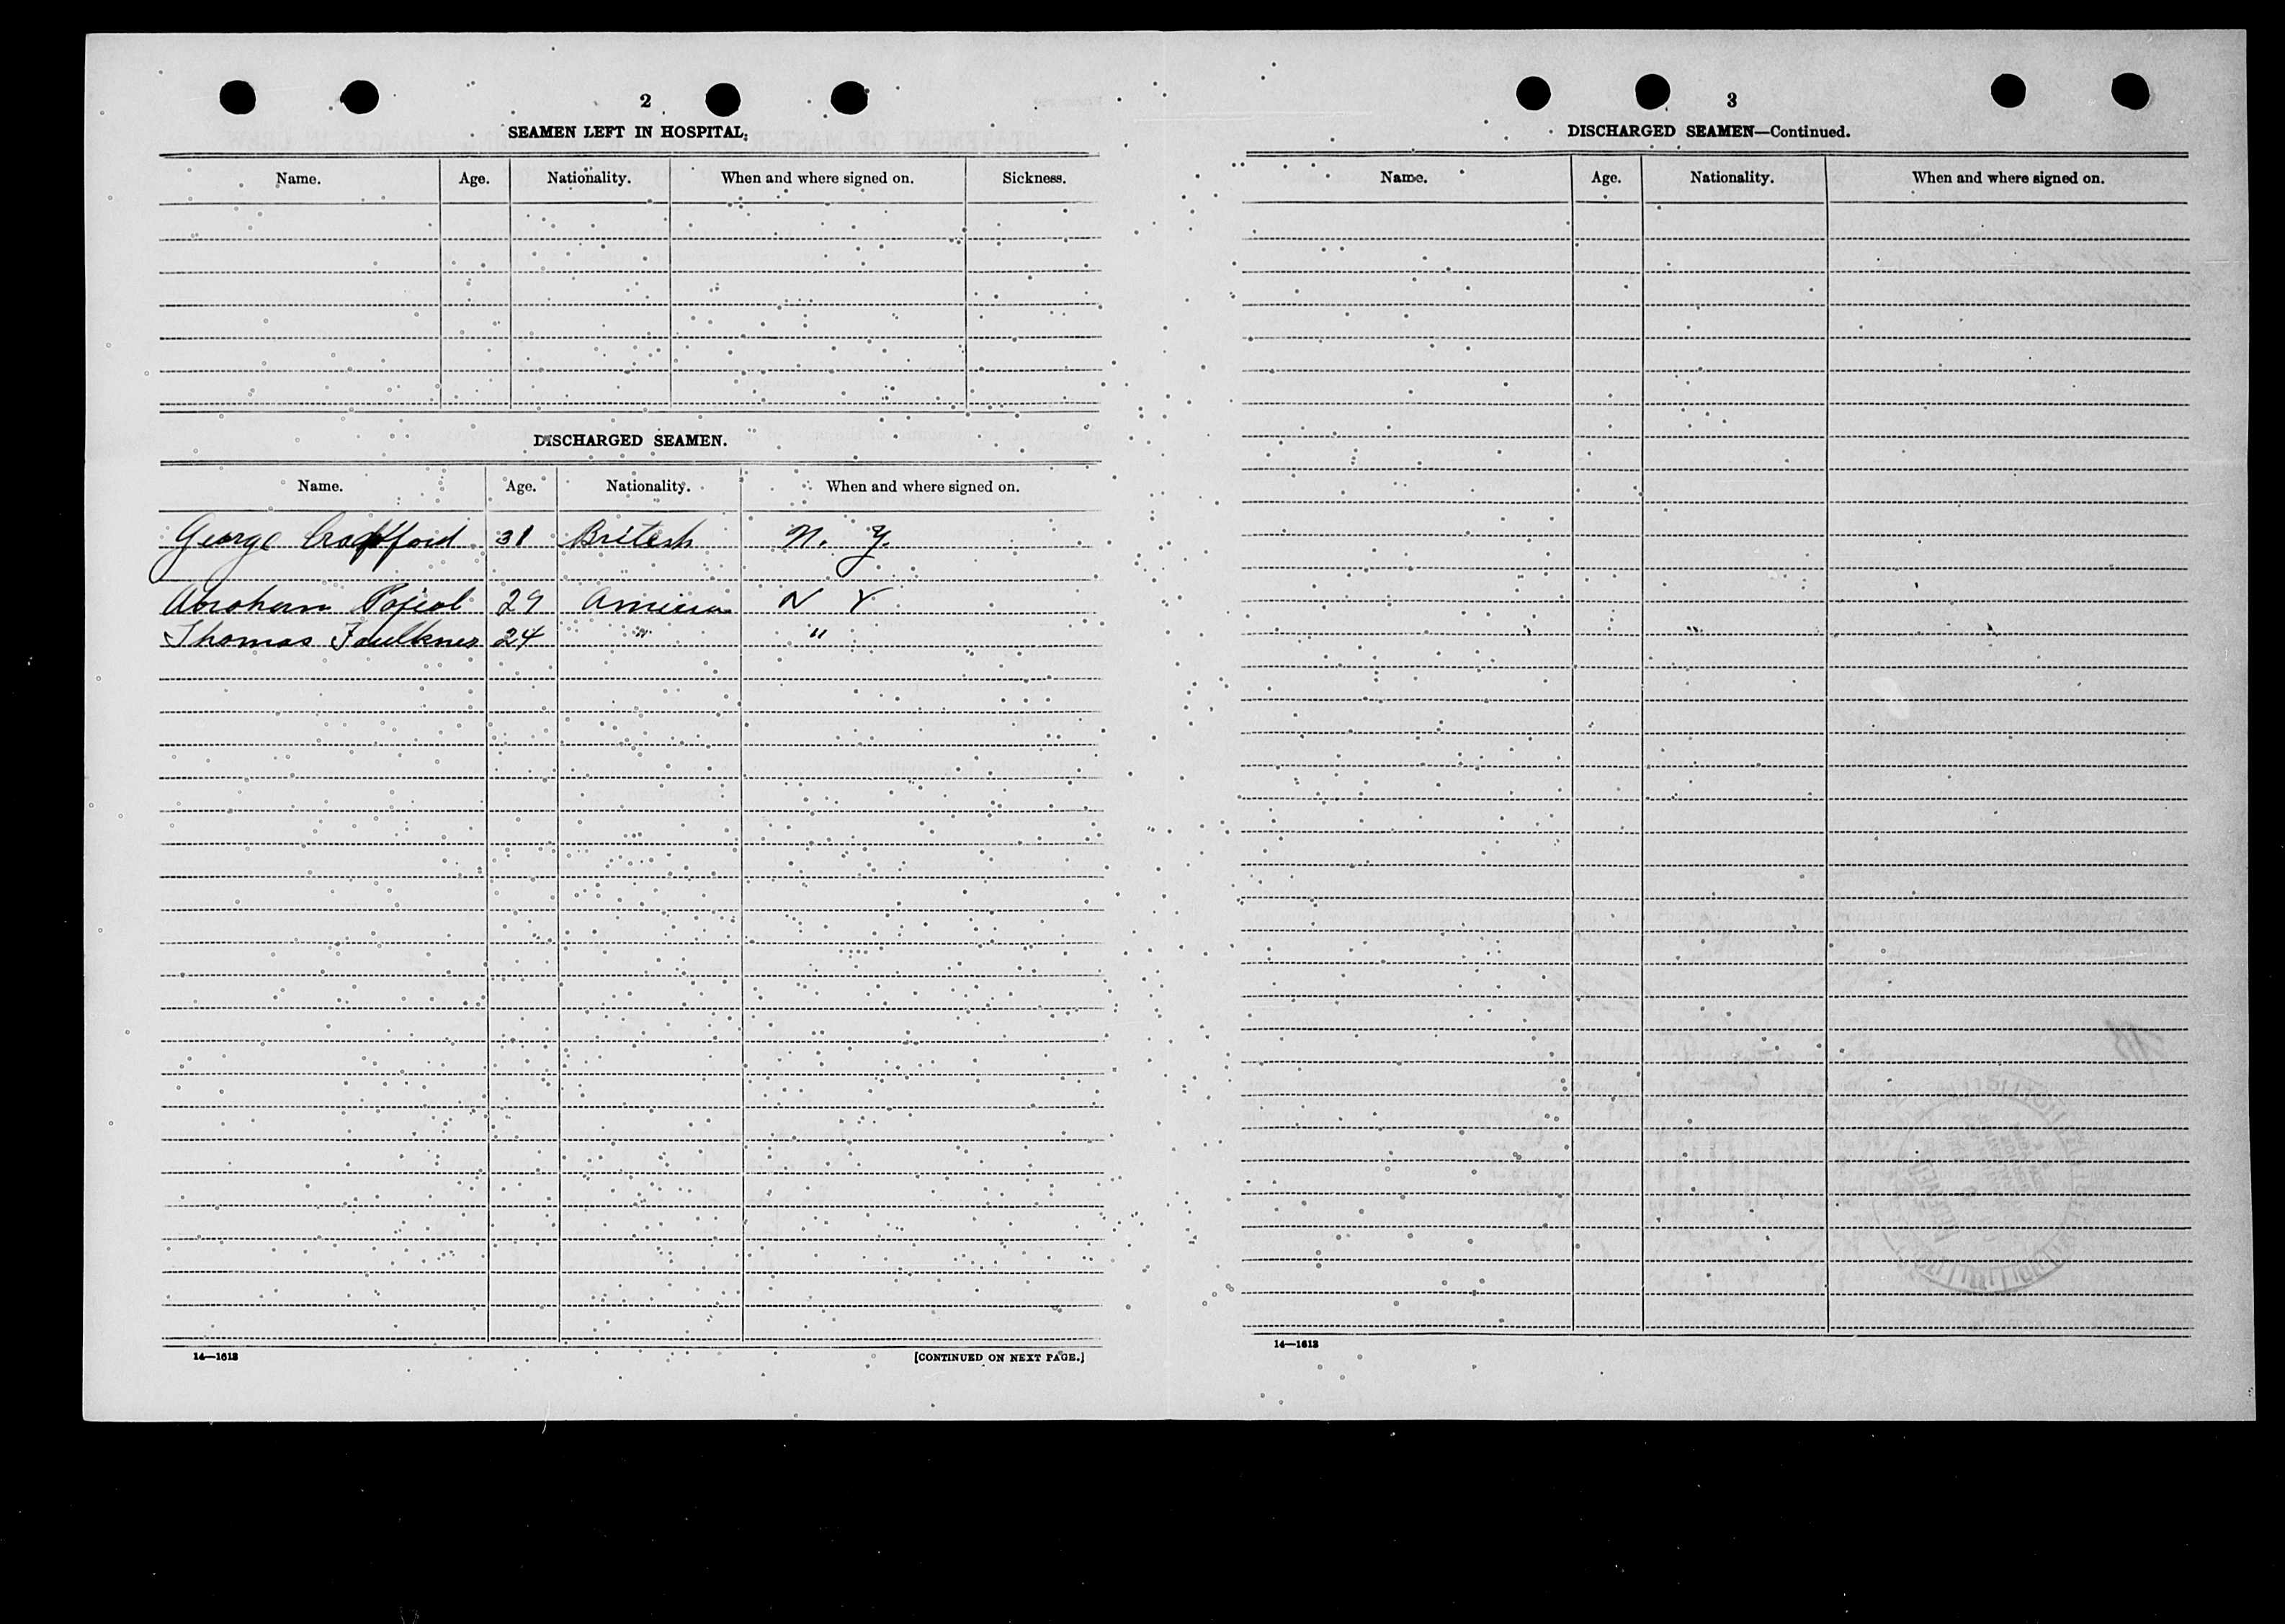 2
SEAMEN LEFT IN HOSPITAL.
Name. Age. Nationality. When and where signed on. Sickness.
DISCHARGED SEAMEN.
Name. Age. Nationality. When and where signed on.
George 31 British N. Y.
Abraham 29 N Y
Thomas Faulkner 24 " "
14—1613
[CONTINUED ON NEXT PAGE.]
3
DISCHARGED SEAMEN—Continued.
Name. Age. Nationality. When and where signed on.
14—1613